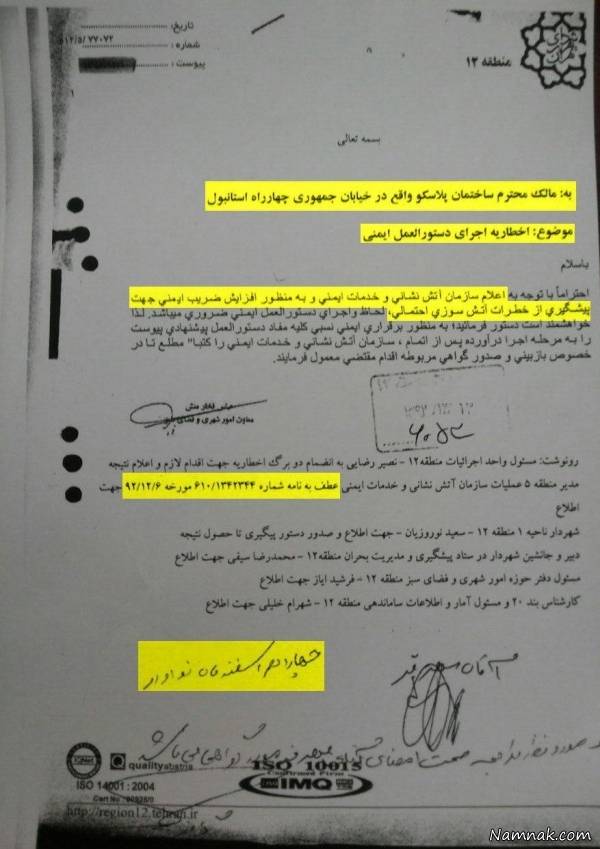 تاریخ:
شماره : ۵۱۲/۵/ ۷۷۰۷۲
پیوست :
منطقه ۱۲
بسمه تعالی
به: مالک محترم ساختمان پلاسکو واقع در خیابان جمهوری چهارراه استانبول
موضوع: اخطاریه اجرای دستورالعمل ایمنی
باسلام
احتراماً با توجه به اعلام سازمان آتش نشاني و خدمات ايمني و به منظور افزايش ضريب ايمني جهت
پيشگيري از خطرات آتش سوزي احتمالي، لحاظ واجراي دستورالعمل ايمني ضروري ميباشد. لذا
خواهشمند است دستور فرمائيد؛ به منظور برقراري ايمني نسبي كليه مفاد دستورالعمل پيشنهادي پيوست
را به مرحله اجرا درآورده پس از اتمام ، سازمان آتش نشاني و خدمات ايمني را كتبا" مطلع تا در
خصوص بازبيني و صدور گواهي مربوطه اقدام مقتضي معمول فرمايند.
معاون امور شهری و فضای سبز
۶۰۵۲
رونوشت: مسئول واحد اجرائیات منطقه۱۲ - نصیر رضایی به انضمام دو برگ اخطاریه جهت اقدام لازم و اعلام نتیجه
مدیر منطقه ۵ عملیات سازمان آتش نشانی و خدمات ایمنی عطف به نامه شماره ۶۱۰/۱۳۴۲۳۴۴ مورخه ۹۲/۱۲/۶ جهت
اطلاع
شهردار ناحیه ۱ منطقه ۱۲ - سعید نوروزیان - جهت اطلاع و صدور دستور پیگیری تا حصول نتیجه
دبیر و جانشین شهردار در ستاد پیشگیری و مدیریت بحران منطقه۱۲ - محمدرضا سیفی جهت اطلاع
مسئول دفتر حوزه امور شهری و فضای سبز منطقه ۱۲ - فرشید ایاز جهت اطلاع
کارشناس بند ۲۰ و مسئول آمار و اطلاعات ساماندهی منطقه ۱۲ - شهرام خلیلی جهت اطلاع
چهاردهم اسفند ماه نود و دو
IQNet
qualityaustria
ISO 14001 : 2004
Cert No : 00925/0
ISO 10015
Confirmed Firm
IMQ
http://region12.tehran.ir
Namnak.com